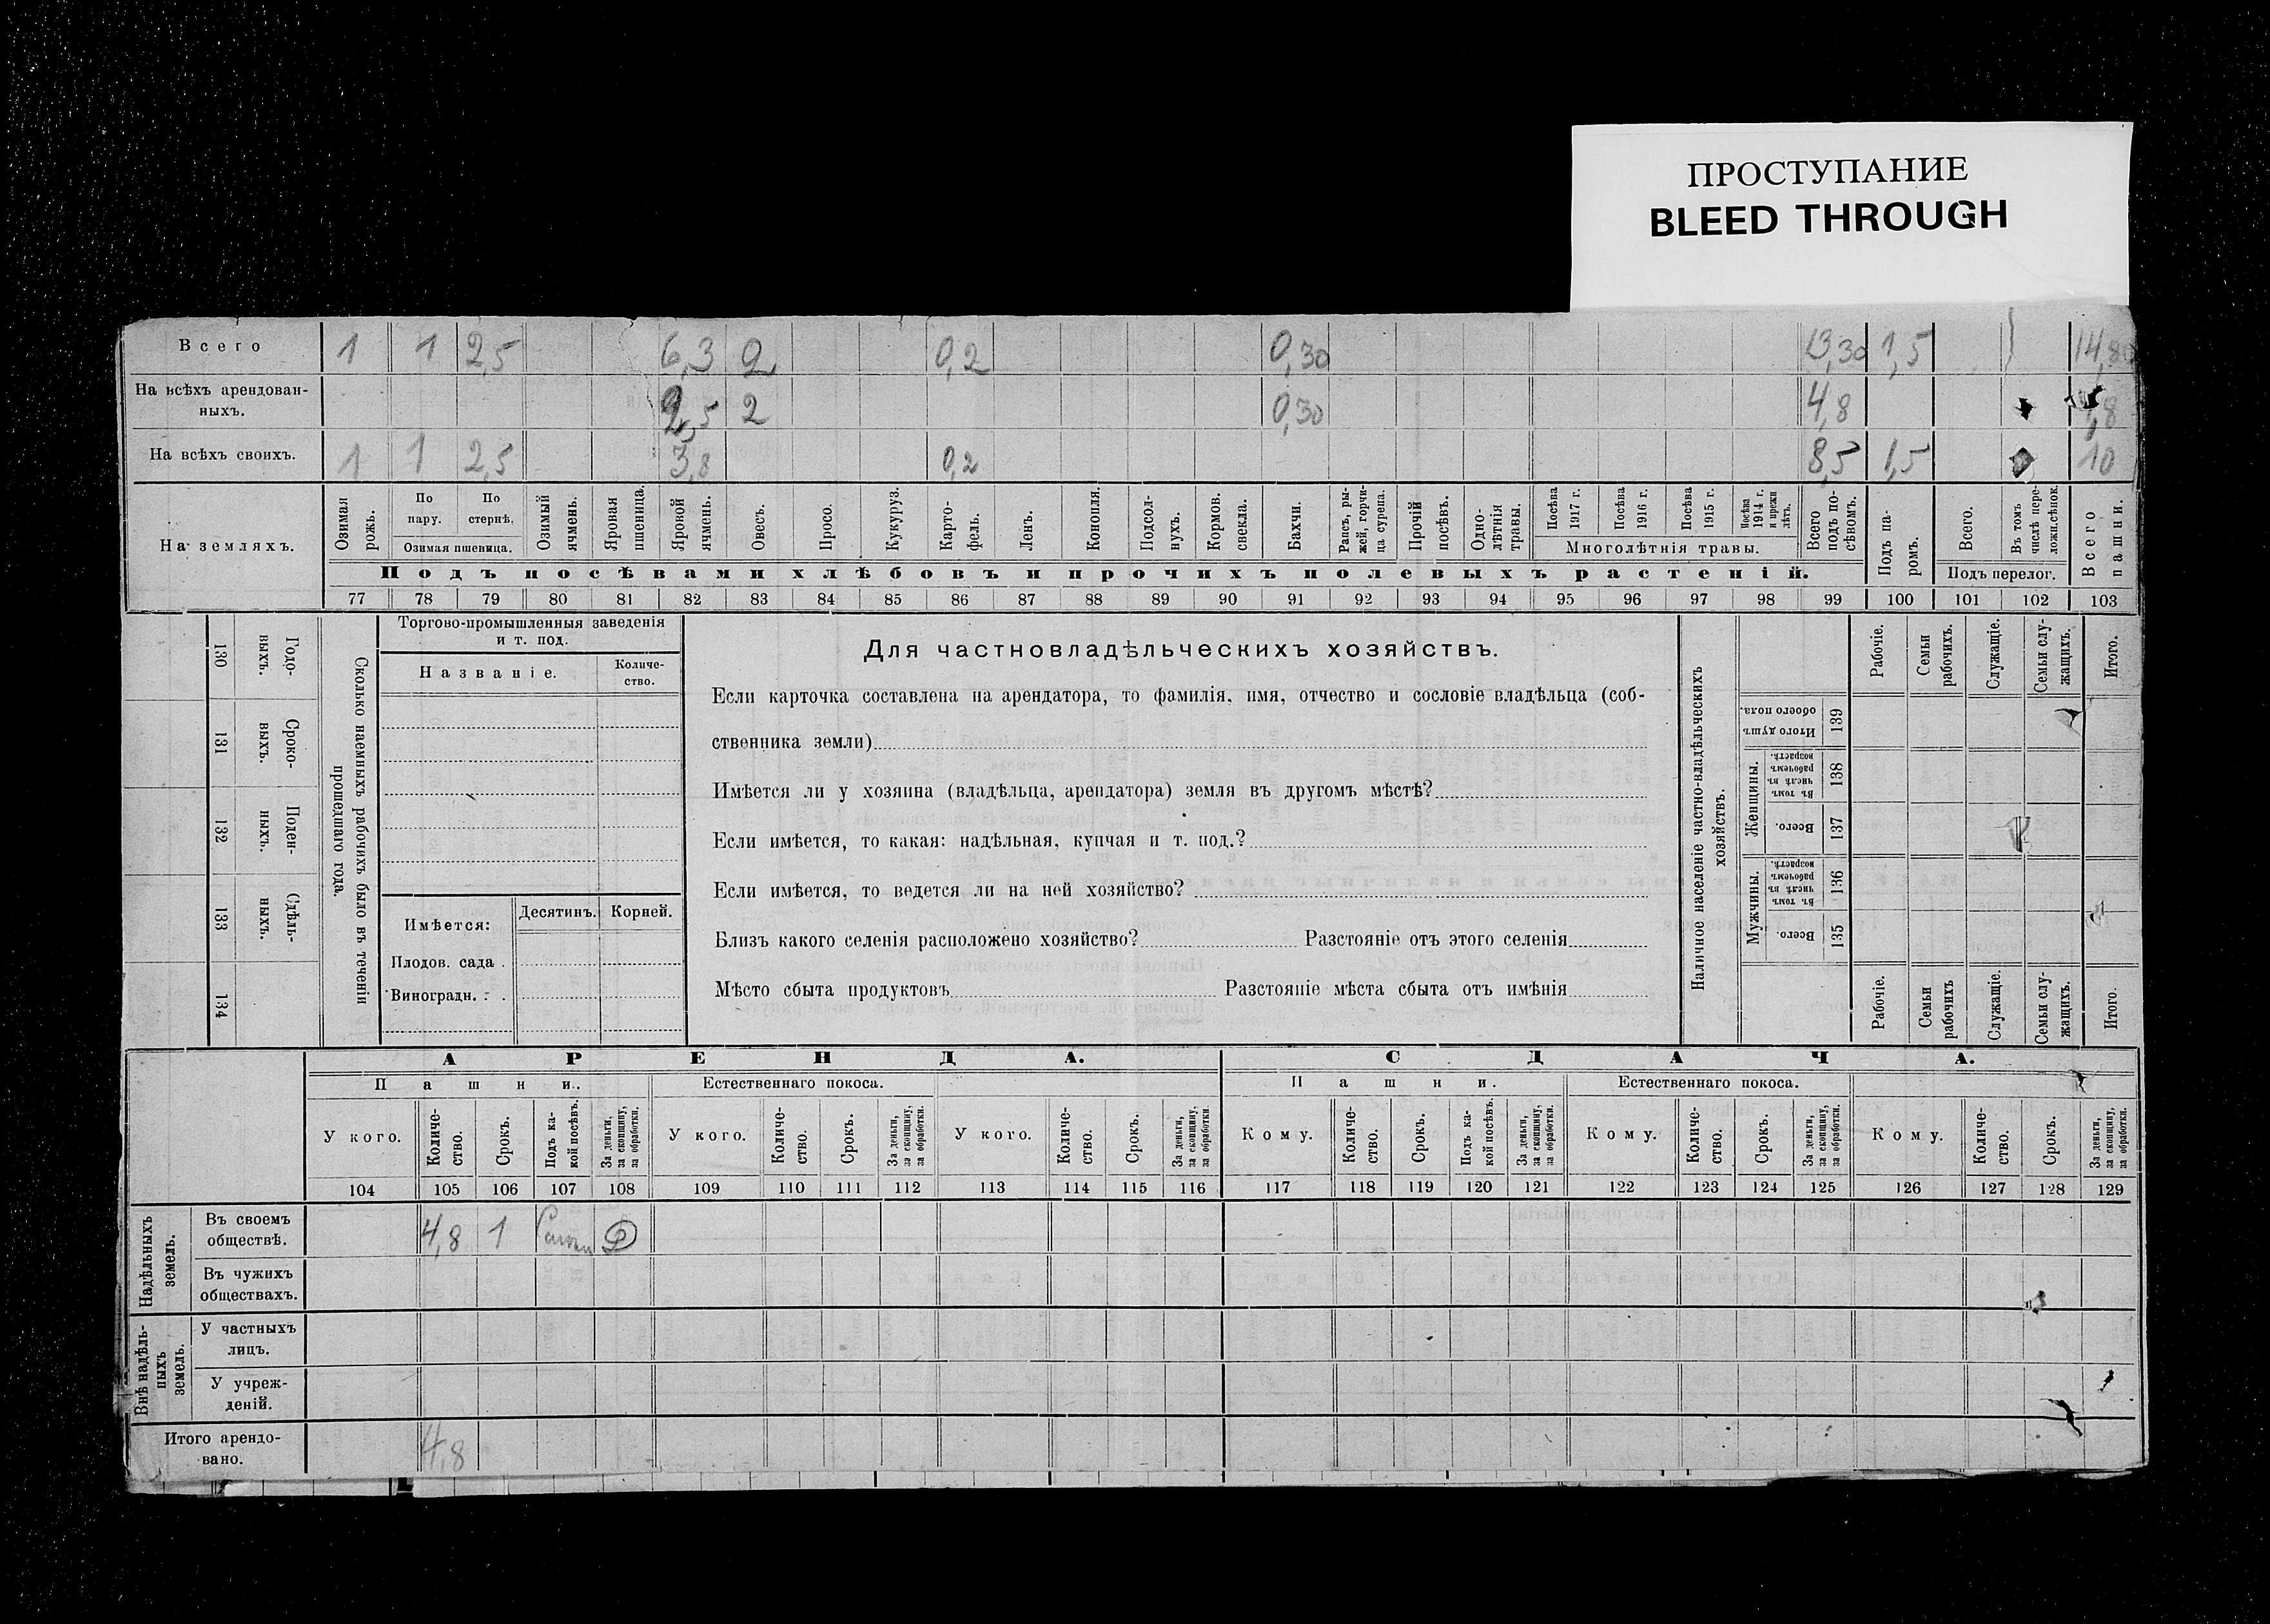 ПРОСТУПАНИЕ
BLEED THROUGH
Всего 1 1 2,5 6,3 2 0,2 0,30 13,30 1,5 14,80
На всѣхъ арендован-
ныхъ. 2,5 2 0,30 4,8 4,8
На всѣхъ своихъ. 1 1 2,5 3,8 0,2 8,5 1,5 10
На земляхъ.
Озимая рожь.
По пару.
По стернѣ.
Озимая пшеница.
Озимый ячмень.
Яровая пшеница.
Яровой ячмень.
Овесъ.
Просо.
Кукуруз.
Карто-
фель.
Ленъ.
Конопля.
Подсол-
нухъ.
Кормов. свекла.
Бахчи.
Рапсъ, ры-
жей, горчи-
ца сурепа.
Прочій посѣвъ.
Одно-
лѣтнія травы.
Посѣва 1917 г.
Посѣва 1916 г.
Посѣва 1915 г.
Посѣва 1914 г. и прежн лѣтъ.
Многолѣтнія травы.
Всего подъ по-
сѣвомъ.
Подъ па-
ромъ.
Всего.
Въ томъ числѣ пере-
лож.сѣнок.
Подъ перелог.
Всего пашни.
Подъ посѣвами хлѣбовъ и прочихъ полевыхъ растеній.
77 78 79 80 81 82 83 84 85 86 87 88 89 90 91 92 93 94 95 96 97 98 99 100 101 102 103
130 Годо-
выхъ.
131 Сроко-
выхъ.
132 Поден-
ныхъ.
133 Сдѣль-
ныхъ.
134
Сколько наемныхъ рабочихъ было въ теченіи
прошедшаго года.
Торгово-промышленныя заведенія
и т. под.
Названіе.
Количе-
ство.
Имѣется:
Десятинъ. Корней.
Плодов. сада .
Виноградн. . .
Для частновладѣльческихъ хозяйствъ.
Если карточка составлена на арендатора, то фамилія, имя, отчество и сословіе владѣльца (соб-
ственника земли)
Имѣется ли у хозяина (владѣльца, арендатора) земля въ другомъ мѣстѣ?
Если имѣется, то какая: надѣльная, купчая и т. под.?
Если имѣется, то ведется ли на ней хозяйство?
Близъ какого селенія расположено хозяйство? Разстояніе отъ этого селенія
Мѣсто сбыта продуктовъ Разстояніе мѣста сбыта отъ имѣнія
Наличное населеніе частно-владѣльческихъ
хозяйствъ.
Рабочіе.
Семьи рабочихъ.
Служащіе.
Семьи слу-
жащихъ.
Итого.
Итого душъ обоего пола. 139
Женщины.
Въ томъ числѣ въ рабочемъ возрастѣ. 138
Всего. 137
Мужчины.
Въ томъ числѣ въ рабочемъ возрастѣ. 136
Всего. 135
Рабочіе.
Семьи рабочихъ
Служащіе.
Семьи слу-
жащихъ.
Итого.
АРЕНДА. СДАЧА.
Пашни. Естественнаго покоса. Пашни. Естественнаго покоса.
У кого.
Количе-
ство.
Срокъ.
Подъ ка-
кой посѣвъ.
За деньги, за скопщину, за обработки.
У кого.
Количе-
ство.
Срокъ.
За деньги, за скопщину, за обработки.
У кого.
Количе-
ство.
Срокъ.
За деньги, за скопщину, за обработки.
Кому.
Количе-
ство.
Срокъ.
Подъ ка-
кой посѣвъ.
За деньги, за скопщину, за обработки.
Кому.
Количе-
ство.
Срокъ.
За деньги, за скопщину, за обработки.
Кому.
Количе-
ство.
Срокъ.
За деньги, за скопщину, за обработки.
104 105 106 107 108 109 110 111 112 113 114 115 116 117 118 119 120 121 122 123 124 125 126 127 128 129
Надѣльныхъ
земель.
Въ своемъ
обществѣ. 4,8 1
Въ чужихъ
обществахъ.
Внѣ надѣль-
ныхъ
земель.
У частныхъ
лицъ.
У учреж-
деній.
Итого арендо-
вано. 4,8